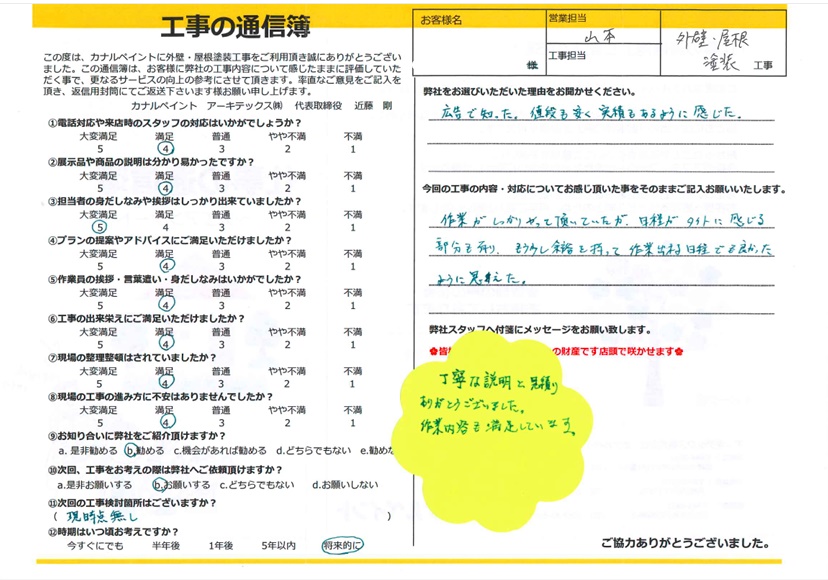 工事の通信簿
この度は、カナルペイントに外壁・屋根塗装工事をご利用頂き誠にありがとうござい
ました。この通信簿は、お客様に弊社の工事内容について感じたままに評価していた
だく事で、更なるサービスの向上の参考にさせて頂きます。率直なご意見をご記入を
頂き、返信用封筒にてご返送下さいます様お願い申し上げます。
カナルペイント アーキテックス㈱ 代表取締役 近藤 剛
①電話対応や来店時のスタッフの対応はいかがでしょうか?
大変満足 満足 普通 やや不満 不満
5 4 3 2 1
②展示品や商品の説明は分かり易かったですか?
大変満足 満足 普通 やや不満 不満
5 4 3 2 1
③担当者の身だしなみや挨拶はしっかり出来ていましたか?
大変満足 満足 普通 やや不満 不満
5 4 3 2 1
④プランの提案やアドバイスにご満足いただけましたか?
大変満足 満足 普通 やや不満 不満
5 4 3 2 1
⑤作業員の挨拶・言葉遣い・身だしなみはいかがでしたか?
大変満足 満足 普通 やや不満 不満
5 4 3 2 1
⑥工事の出来栄えにご満足いただけましたか?
大変満足 満足 普通 やや不満 不満
5 4 3 2 1
⑦現場の整理整頓はされていましたか?
大変満足 満足 普通 やや不満 不満
5 4 3 2 1
⑧現場の工事の進み方に不安はありませんでしたか?
大変満足 満足 普通 やや不満 不満
5 4 3 2 1
⑨お知り合いに弊社をご紹介頂けますか?
a. 是非勧める b.勧める c.機会があれば勧める d.どちらでもない e.勧めな
⑩次回、工事をお考えの際は弊社へご依頼頂けますか?
a.是非お願いする b.お願いする c.どちらでもない d.お願いしない
⑪次回の工事検討箇所はございますか?
( 現時点無し )
⑫時期はいつ頃お考えですか?
今すぐにでも 半年後 1年後 5年以内 将来的に
お客様名
様
営業担当
山本
工事担当
外壁・屋根
塗装 工事
弊社をお選びいただいた理由をお聞かせください。
広告で知った。値段も安く実績もあるように感じた。
今回の工事の内容・対応についてお感じ頂いた事をそのままご記入お願いいたします。
作業がしっかりやって頂いていたが、日程がタイトに感じる
部分も有り、もう少し余裕を持って作業出来る日程でも良かった
ように思えた。
弊社スタッフへ付箋にメッセージをお願い致します。
✿皆 の財産です店頭で咲かせます✿
丁寧な説明と見積り
ありがとうございました。
作業内容も満足しています。
ご協力ありがとうございました。